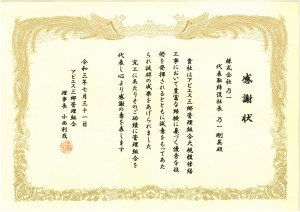 感謝状
株式会社乃一
代表取締役社長 乃一剛英殿
貴社はアビエス三郷管理組合大規模修繕
工事において豊富な経験に基づく優秀な技
術を発揮されるとともに誠意をもってあた
られ抜群の成果をあげられました
完工にあたりそのご功績に管理組合を
代表し心より感謝の意を表します
令和三年七月三十一日
アビエス三郷管理組合
理事長 小西利哉